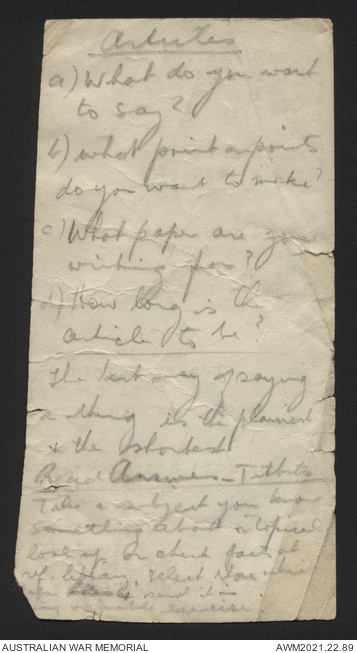 Articles
a) What do you want
to say?
b) what point or points
do you want to make?
c) What paper are you
writing for?
d) How long is the
article to be?
The best way of saying
a thing is the plainest
& the shortest
Read Answers - Titbits
Take a subject you know
something about or topical
look up or check facts at
library, select
said it
valuable exercise.
AUSTRALIAN WAR MEMORIAL
AWM2021.22.89